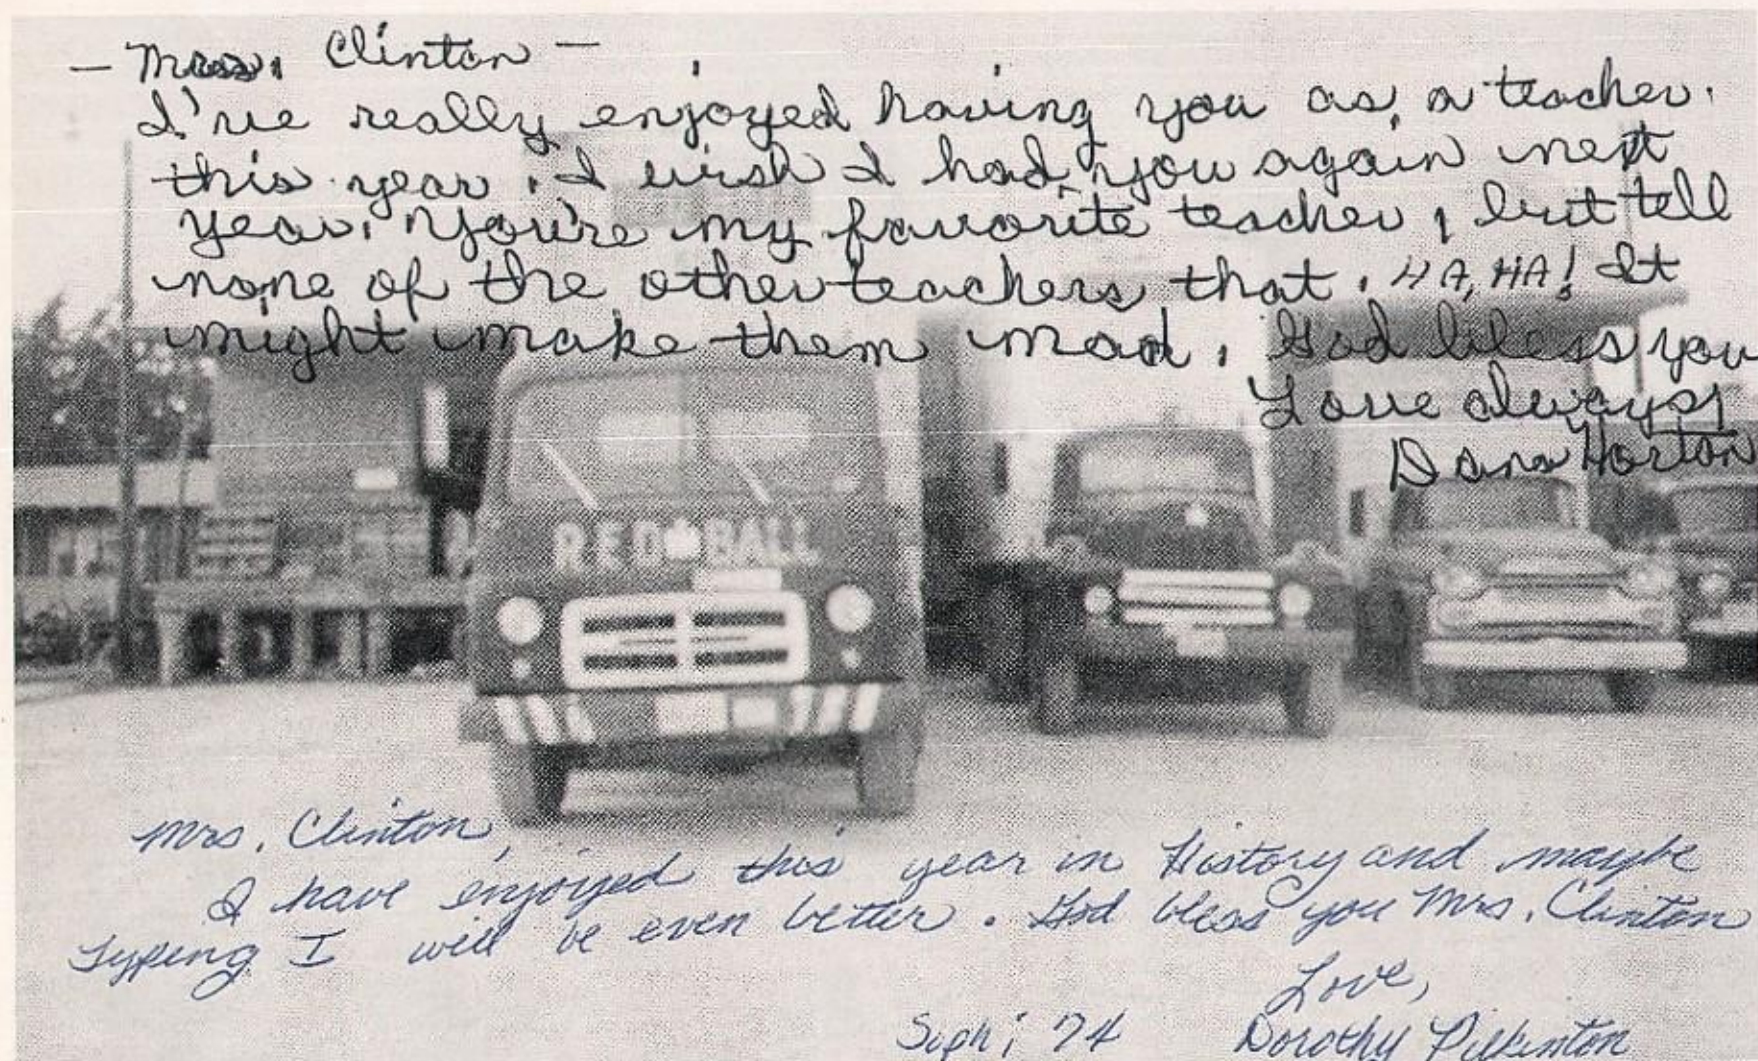 — Mrs. Clinton —
I've really enjoyed having you as a teacher
this year. I wish I had you again next
year. You're my favorite teacher, but tell
none of the other teachers that. HA, HA! It
might make them mad. God bless you
Love always,
Dana Horton
RED BALL
Mrs. Clinton,
I have enjoyed this year in History and maybe
Typing I will be even better. God bless you Mrs. Clinton
Love,
Soph; 74 Dorothy Pilkinton